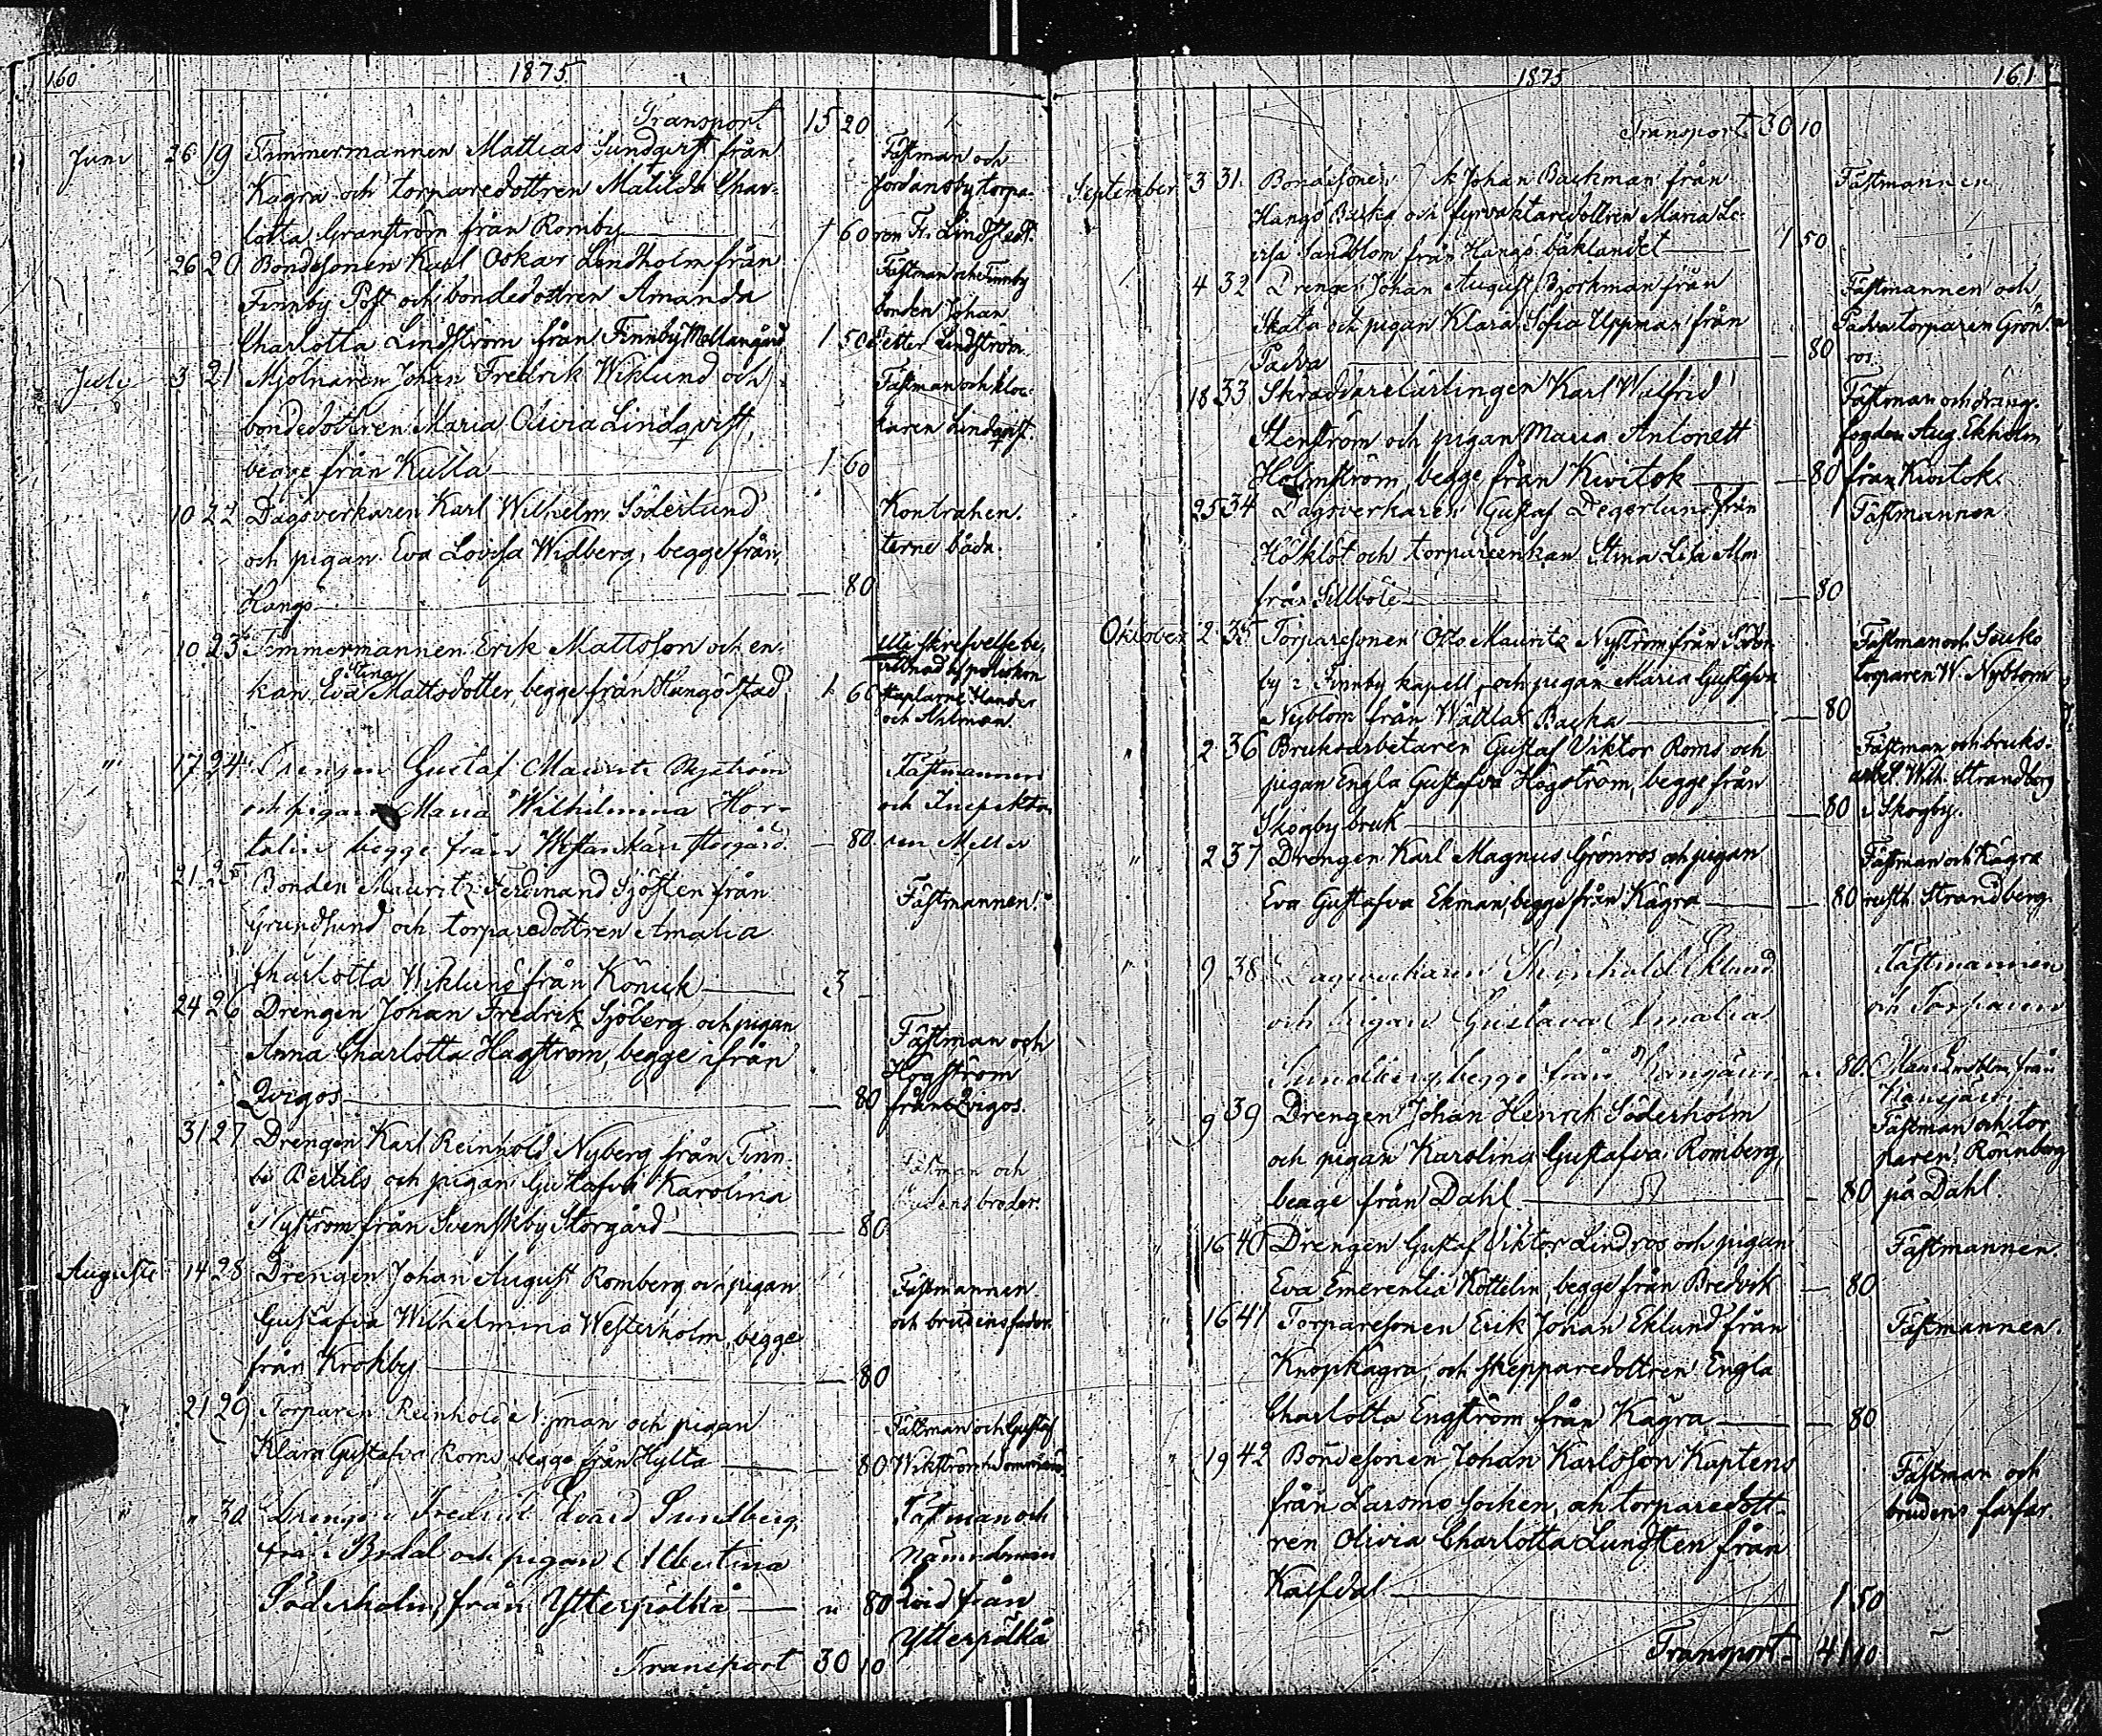 160
1875
Transport 15 20
Juni 26 19 Timmermannen Mattias Sundqvist från
Fästman och
Kagra och torparedottren Matilda Char-
Jordansby torpa-
lotta Granström från Romby 1 60
ren Fr. Lindstedt.
26 20 Bondesonen Karl Oskar Lindholm från
Fästman och Finnby
Finnby Post och bondedottren Amanda
bonden Johan
Charlotta Lindström från Finnby Mellangård 1 50
Petter Lindström.
Juli 3 21 Mjölnaren Johan Fredrik Wiklund och
Fästman och kloc-
bondedottren Maria Olivia Lindqvist,
karen Lindqvist.
begge från Kulla 1 60
10 22 Dagsverkaren Karl Wilhelm Söderlund
Kontrahen-
och pigan Eva Lovisa Widberg, begge från
terne båda.
Hangö 80
10 23 Timmermannen Erik Mattsson och en-
kan Eva Stina Mattsdotter, begge från Hangö stad 1 60
och Ahlman.
" 17 24 Drengen Gustaf Mauritz Nyström
Fästmannen
och pigan Maria Wilhelmina Hor-
och Inspekto-
telin begge från Westankärr Storgård. — 80
ren Meller
" 21 25 Bonden Mauritz Ferdinand Sjösten från
Fästmannen.
Grundsund och torparedottren Amalia
Charlotta Wiklund från Könick 3 —
24 26 Drengen Johan Fredrik Sjöberg och pigan
Fästman och
Anna Charlotta Hagström, begge ifrån
Högström
Qvigos — 80
från Qvigos.
31 27 Drengen Karl Reinhold Nyberg från Finn-
Fästman och
by Bertils och pigan Gustafva Karolina
brudens broder.
Nyström från Svenskby Storgård — 80
Augusti 14 28 Drengen Johan August Romberg och pigan
Fästmannen
Gustafva Wilhelmina Westerholm, begge
och brudens fader.
från Krokby — 80
" 21 29 Torparen Reinhold man och pigan
Fästman och Gustaf
Klara Gustafva Roms, begge från Hylta — 80
Wikström
" " 30 Drengen Fredrik Edvard Sundberg
Fästman och
från Bredal och pigan Albertina
Nämndman
Söderholm, från Ytterpölkiä — " 80
från
Ytterpölkä
Transport 30 10
1875
161
Transport 30 10
September 3 31 Bondesonen Johan Backman från
Fästmannen
Hangö Backa och fyrvaktaredottren Maria Lo-
visa Sandblom från Hangö båklandet 1 50
4 32 Drengen Johan August Björkman från
Fästmannen och
Skata och pigan Klara Sofia Uppman från
Padva torparen Grön-
Padva — 80
ros
18 33 Skräddarelärlingen Karl Walfrid
Fästman och dräng-
Stenström och pigan Maria Antonett
fogden Aug. Ekholm
Holmström, begge från Kivitok — 80
från Kivitok.
25 34 Dagsverkaren Gustaf Degerlund från
Fästmannen.
Höklöt och torpareenkan Stina Lisa Alm
från Sillböle — 80
Oktober 2 35 Torparesonen Otto Mauritz Nyström från Söder-
by i Finnby kapell, och pigan Maria Gustafva
torparen W. Nyblom
Nyblom från Wättlax Backa — 80
" 2 36 Bruksarbetaren Gustaf Viktor Roms och
Fästman och bruks-
pigan Engla Gustafva Högström, begge från
arbet Wilh. Strandberg
Skogby bruk — 80
i Skogby.
" 2 37 Drengen Karl Magnus Grönros och pigan
Fästman och Kagra
Eva Gustafva Ekman, begge från Kagra — 80
rusth. Strandberg.
" 9 38 Dagsverkaren Reinhold Eklund
Fästmannen
och pigan Gustava Amalia
och Torparen
Sundberg, begge från " 80
från
" 9 39 Drengen Johan Henrik Söderholm
Fästman och tor
och pigan Karolina Gustafva Romberg,
paren Rönnberg
begge från Dahl — 80
på Dahl.
" 16 40 Drengen Gustaf Viktor Lindros och pigan
Fästmannen.
Eva Emerentia Kottelin, begge från Bredvik — 80
" 16 41 Torparesonen Erik Johan Eklund från
Fästmannen.
Knopkagra, och skepparedottren Engla
Charlotta Engström från Kagra — 80
" 19 42 Bondesonen Johan Karlsson Kaptens
Fästman och
från Larsmo socken, och torparedott-
brudens farfar.
ren Olivia Charlotta Lundsten från
Kalfdal 1 50
Transport 41 10